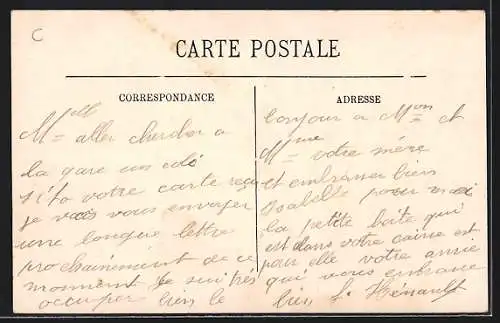 C
CARTE POSTALE
CORRESPONDANCE
Mell aller chercher a
la gare un coli
sito votre carte reçu
je vais vous envoyer
une longue lettre
prochainement de ce
moment je suis très
occuper bien le
ADRESSE
bonjour a Mon et
Mme votre mère
et embrasser bien
Isabelle pour moi
la petite boite qui
est dans votre caisse est
pour elle votre amie
qui vous embrasse
bien S. Hénault